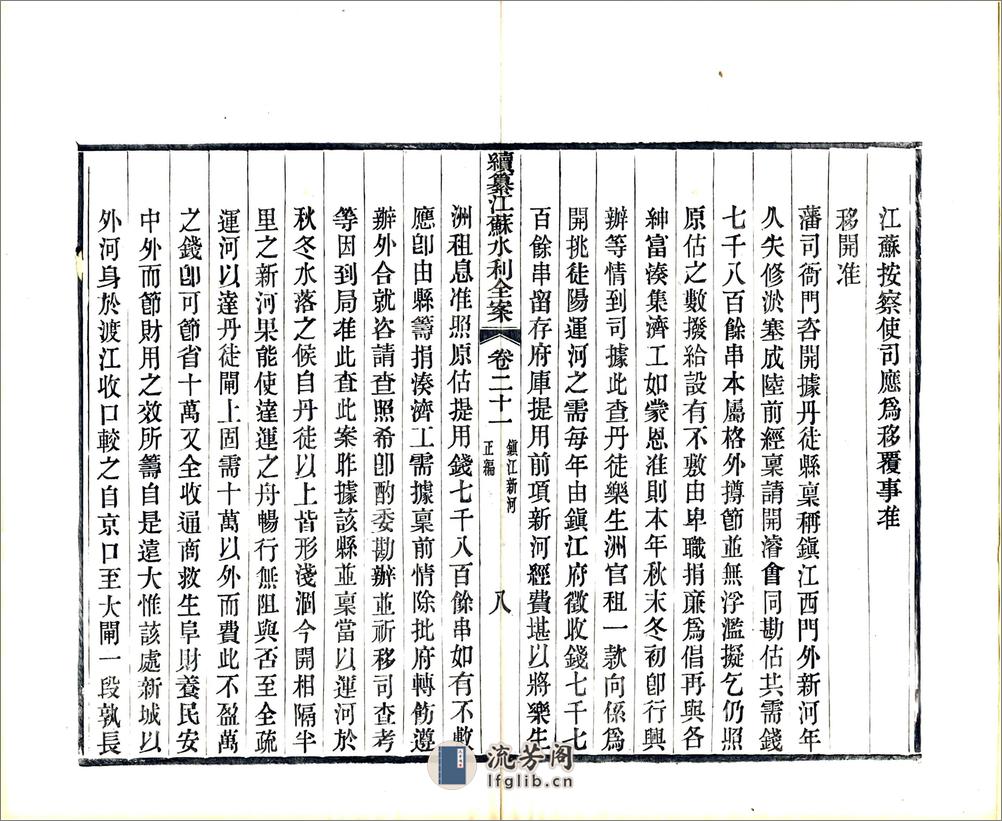 江蘇按察使司應爲移覆事准
移開准
藩司衙門咨開據丹徒縣稟稱鎭江西門外新河年
久失修淤塞成陸前經稟請開濬會同勘估共需錢
七千八百餘串本屬格外撙節並無浮濫擬乞仍照
原估之數撥給設有不敷由卑職捐廉爲倡再與各
紳富湊集濟工如蒙恩准則本年秋末冬初卽行興
辦等情到司據此查丹徒樂生洲官租一款向係爲
開挑徒陽運河之需每年由鎭江府徵收錢七千七
百餘串留存府庫提用前項新河經費堪以將樂生
續纂江蘇水利全案 卷二十一 鎭江新河 正編 八
洲租息准照原估提用錢七千八百餘串如有不敷
應卽由縣籌捐湊濟工需據稟前情除批府轉飭遵
辦外合就咨請查照希卽酌委勘辦並祈移司查考
等因到局准此查此案昨據該縣並稟當以運河於
秋冬水落之候自丹徒以上皆形淺涸今開相隔半
里之新河果能使達運之舟暢行無阻與否至全疏
運河以達丹徒閘上固需十萬以外而費此不盈萬
之錢卽可節省十萬又全收通商救生阜財養民安
中外而節財用之效所籌自是遠大惟該處新城以
外河身於渡江收口較之自京口至大閘一段孰長
流芳阁
lfglib.cn